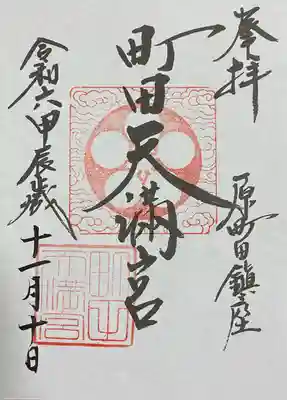 奉拝
原町田鎮座
町田天満宮
令和六甲辰歳
十一月十日
町田天満宮